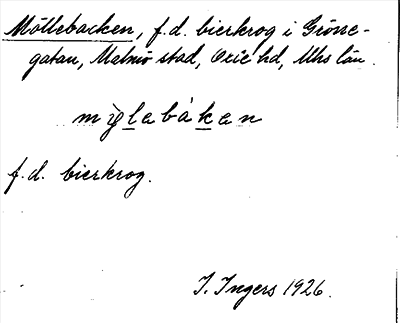 Möllebacken, f.d. bierkrog i Gröne-
gatan, Malmö stad, Oxie hd, Mhs län.
mỳlebáken
f.d. bierkrog.
I. Ingers 1926.